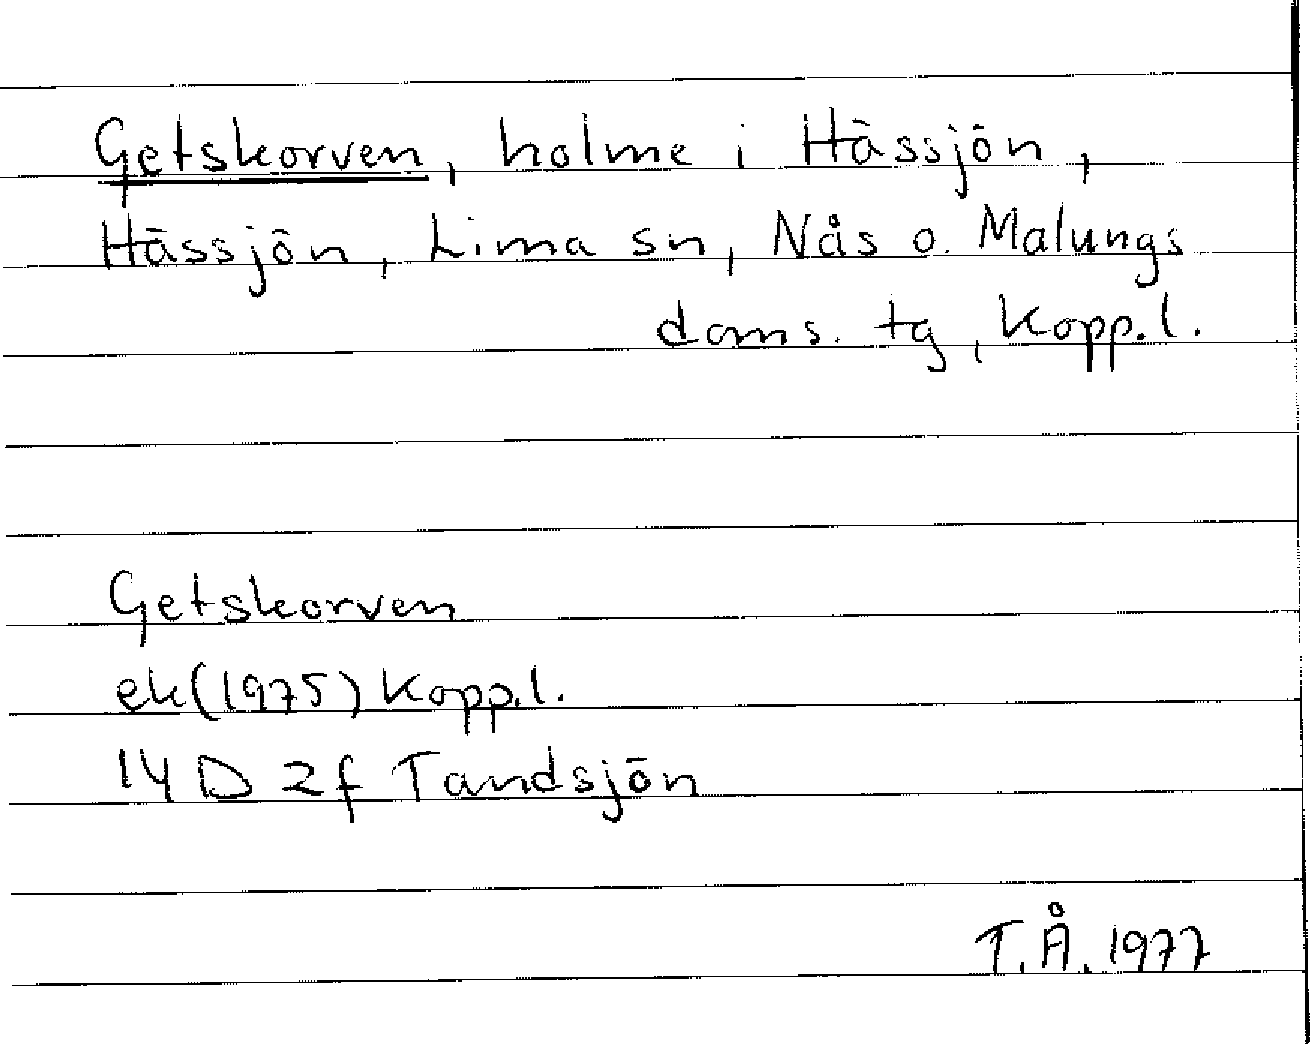 Getskorven, holme i Hässjön,
Hässjön, Lima sn, Nås o. Malungs
doms. tg, Kopp.l.
Getskorven
ek(1975) Kopp.l.
14 D 2f Tandsjön
T.Å. 1977